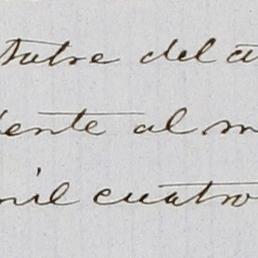 tubre del a
iente al m
mil cuatro